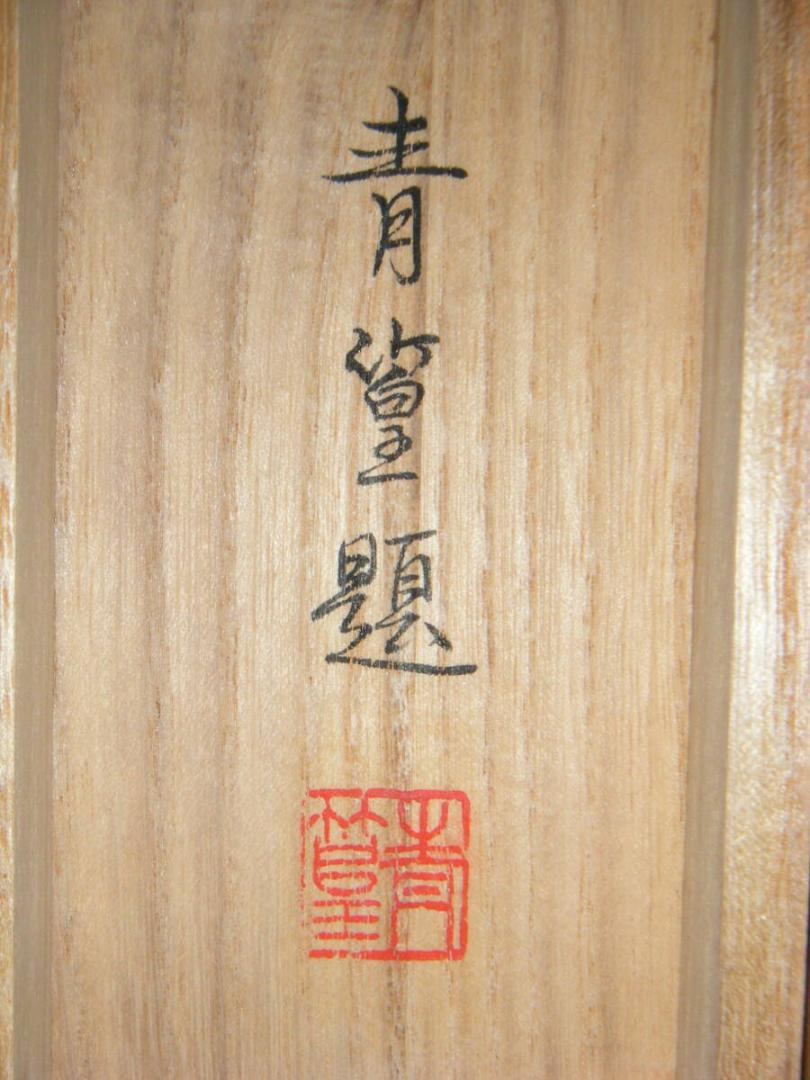 青篁題
青篁